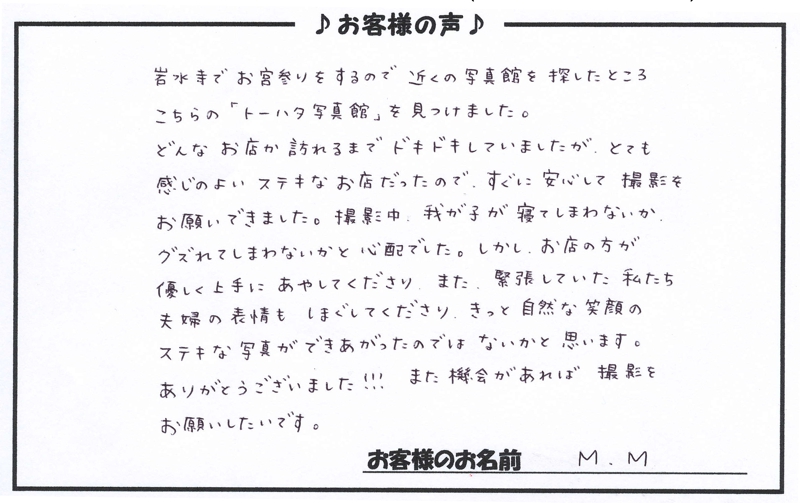 ♪お客様の声♪
岩水寺でお宮参りをするので 近くの写真館を 探したところ
こちらの「トーハタ写真館」を見つけました。
どんな お店か 訪れるまで ドキドキしていましたが、とても
感じのよい ステキな お店だったので、すぐに 安心して 撮影を
お願いできました。撮影中、我が子が 寝てしまわないか、
グズれてしまわないかと 心配でした。しかし、お店の方が
優しく上手に あやしてくださり、また、緊張していた 私たち
夫婦の表情も ほぐしてくださり、きっと 自然な笑顔の
ステキな写真が できあがったのでは ないかと 思います。
ありがとうございました!!! また機会があれば 撮影を
お願いしたいです。
お客様のお名前 M.M